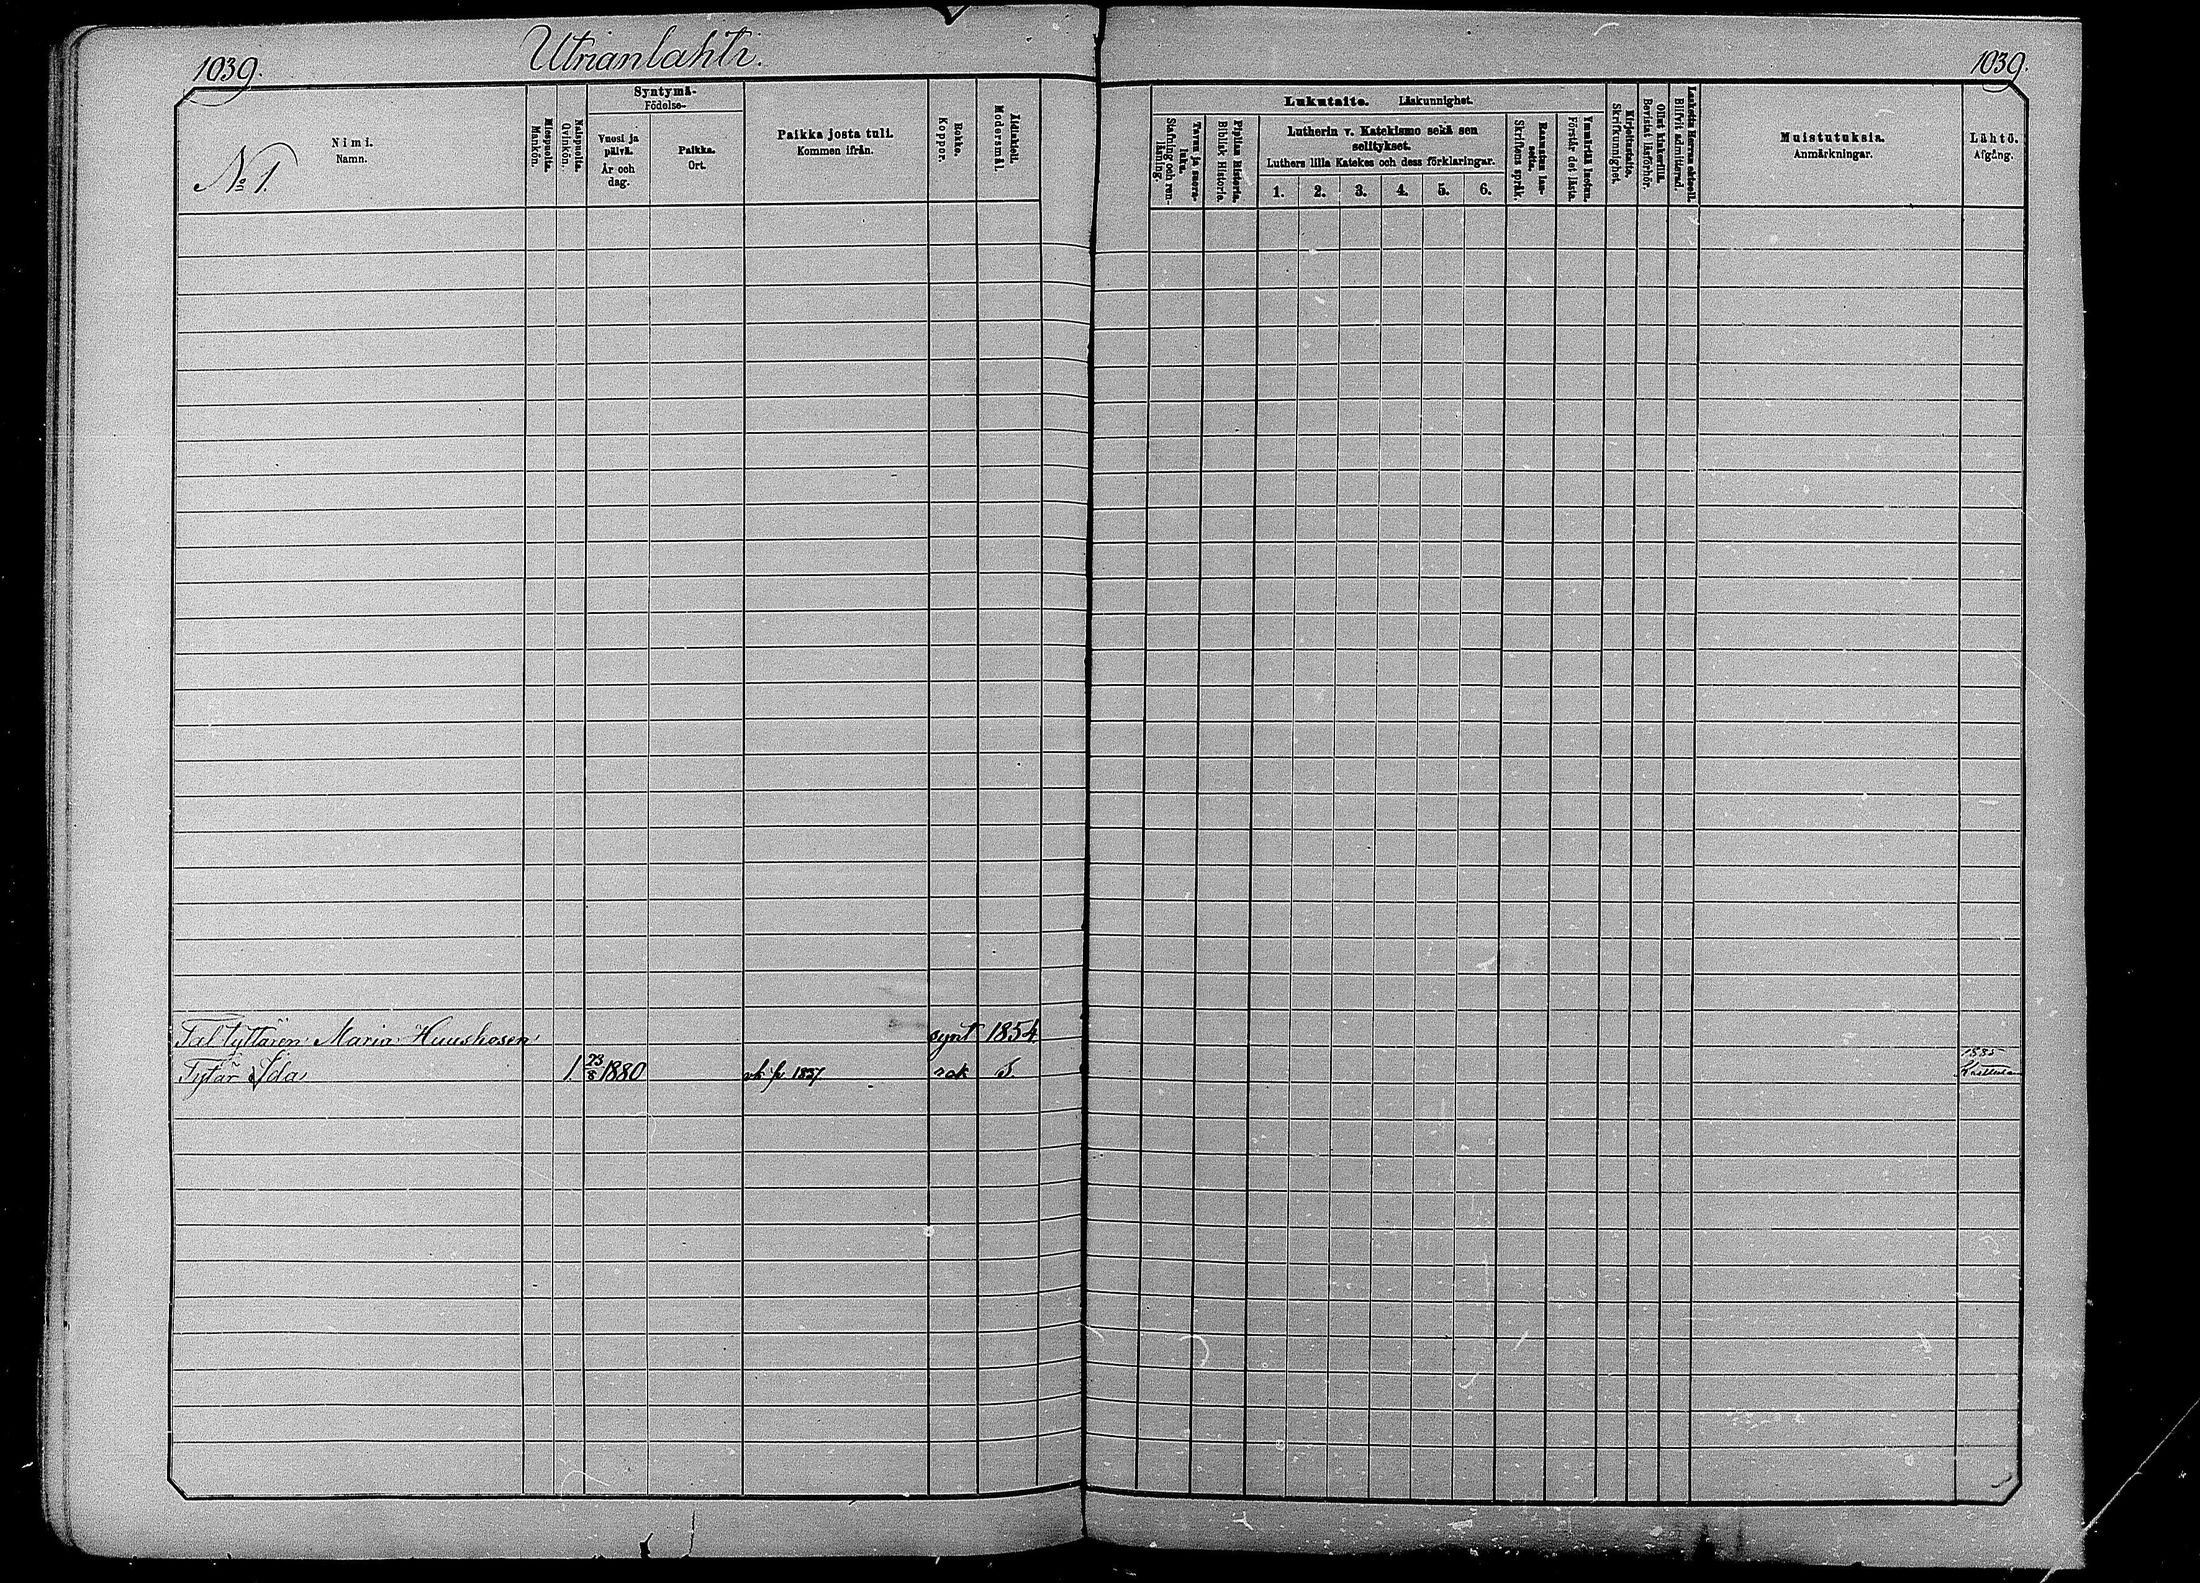 1039.
Utrianlahti.
1039.
No 1.
Nimi.
Namn.
Miespuolta.
Mankön.
Naispuolta.
Qvinkön.
Syntymä-
Födelse-
Vuosi ja
päivä.
År och
dag.
Paikka.
Ort.
Paikka josta tuli.
Kommen ifrån.
Rokko.
Koppor.
Äidinkieli.
Modersmål.
Lukutaito. Läskunnighet.
Tavuu ja suora-
luku.
Stafning och ren-
läsning.
Piplian Historia.
Biblisk Historia.
Lutherin v. Katekismo sekä sen
selitykset.
Luthers lilla Katekes och dess förklaringar.
1. 2. 3. 4. 5. 6.
Raamatun lau-
seita.
Skriftens språk.
Ymmärtää luetun.
Förstår det lästa.
Kirjoitustaito.
Skrifkunnighet.
Ollut kinkerillä.
Bevistat läsförhör.
Laskettu Herran ehtooll.
Blifvit admitterad.
Muistutuksia.
Anmärkningar.
Lähtö.
Afgång.
Tal. tyttären Maria Huuskosen synt 1854
Tytär Ida 1. 23/8 1880 rok S. 1885